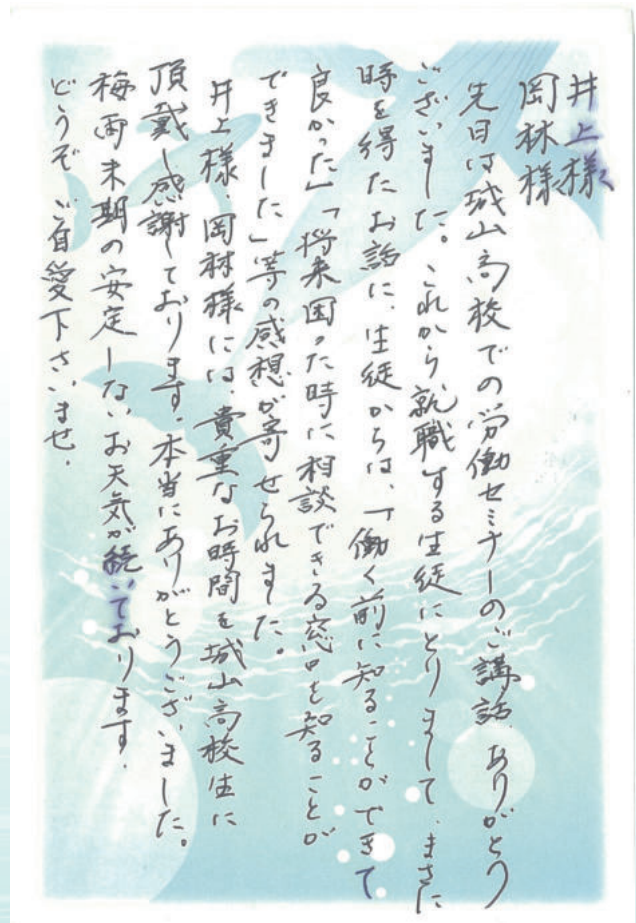 井上様
岡林様
先日は城山高校での労働セミナーのご講話、ありがとう
ございました。これから就職する生徒にとりまして、まさに
時を得たお話に、生徒からは、「働く前に知ることができて
良かった」「将来困った時に相談できる窓口を知ることが
できました」等の感想が寄せられました。
井上様、岡林様には、貴重なお時間を城山高校生に
頂戴し感謝しております。本当にありがとうございました。
梅雨末期の安定しないお天気が続いております。
どうぞご自愛下さいませ。